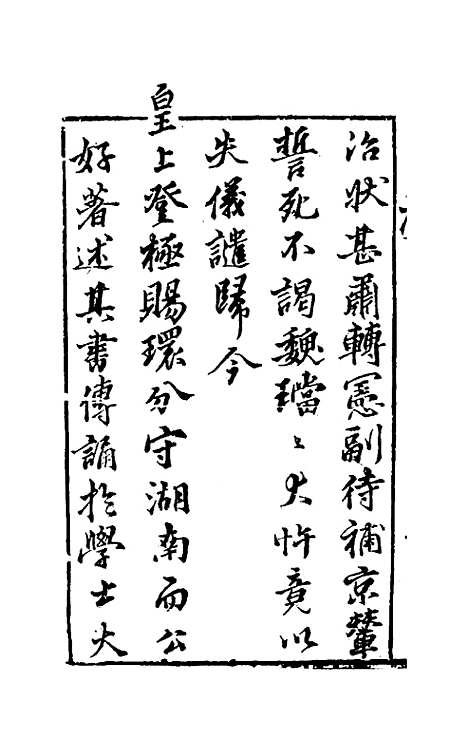 治狀甚肅轉憲副待補京輦
誓死不謁魏璫〻大忤竟以
失儀譴歸今
皇上登極賜環分守湖南而公
好著述其書傳誦於學士大